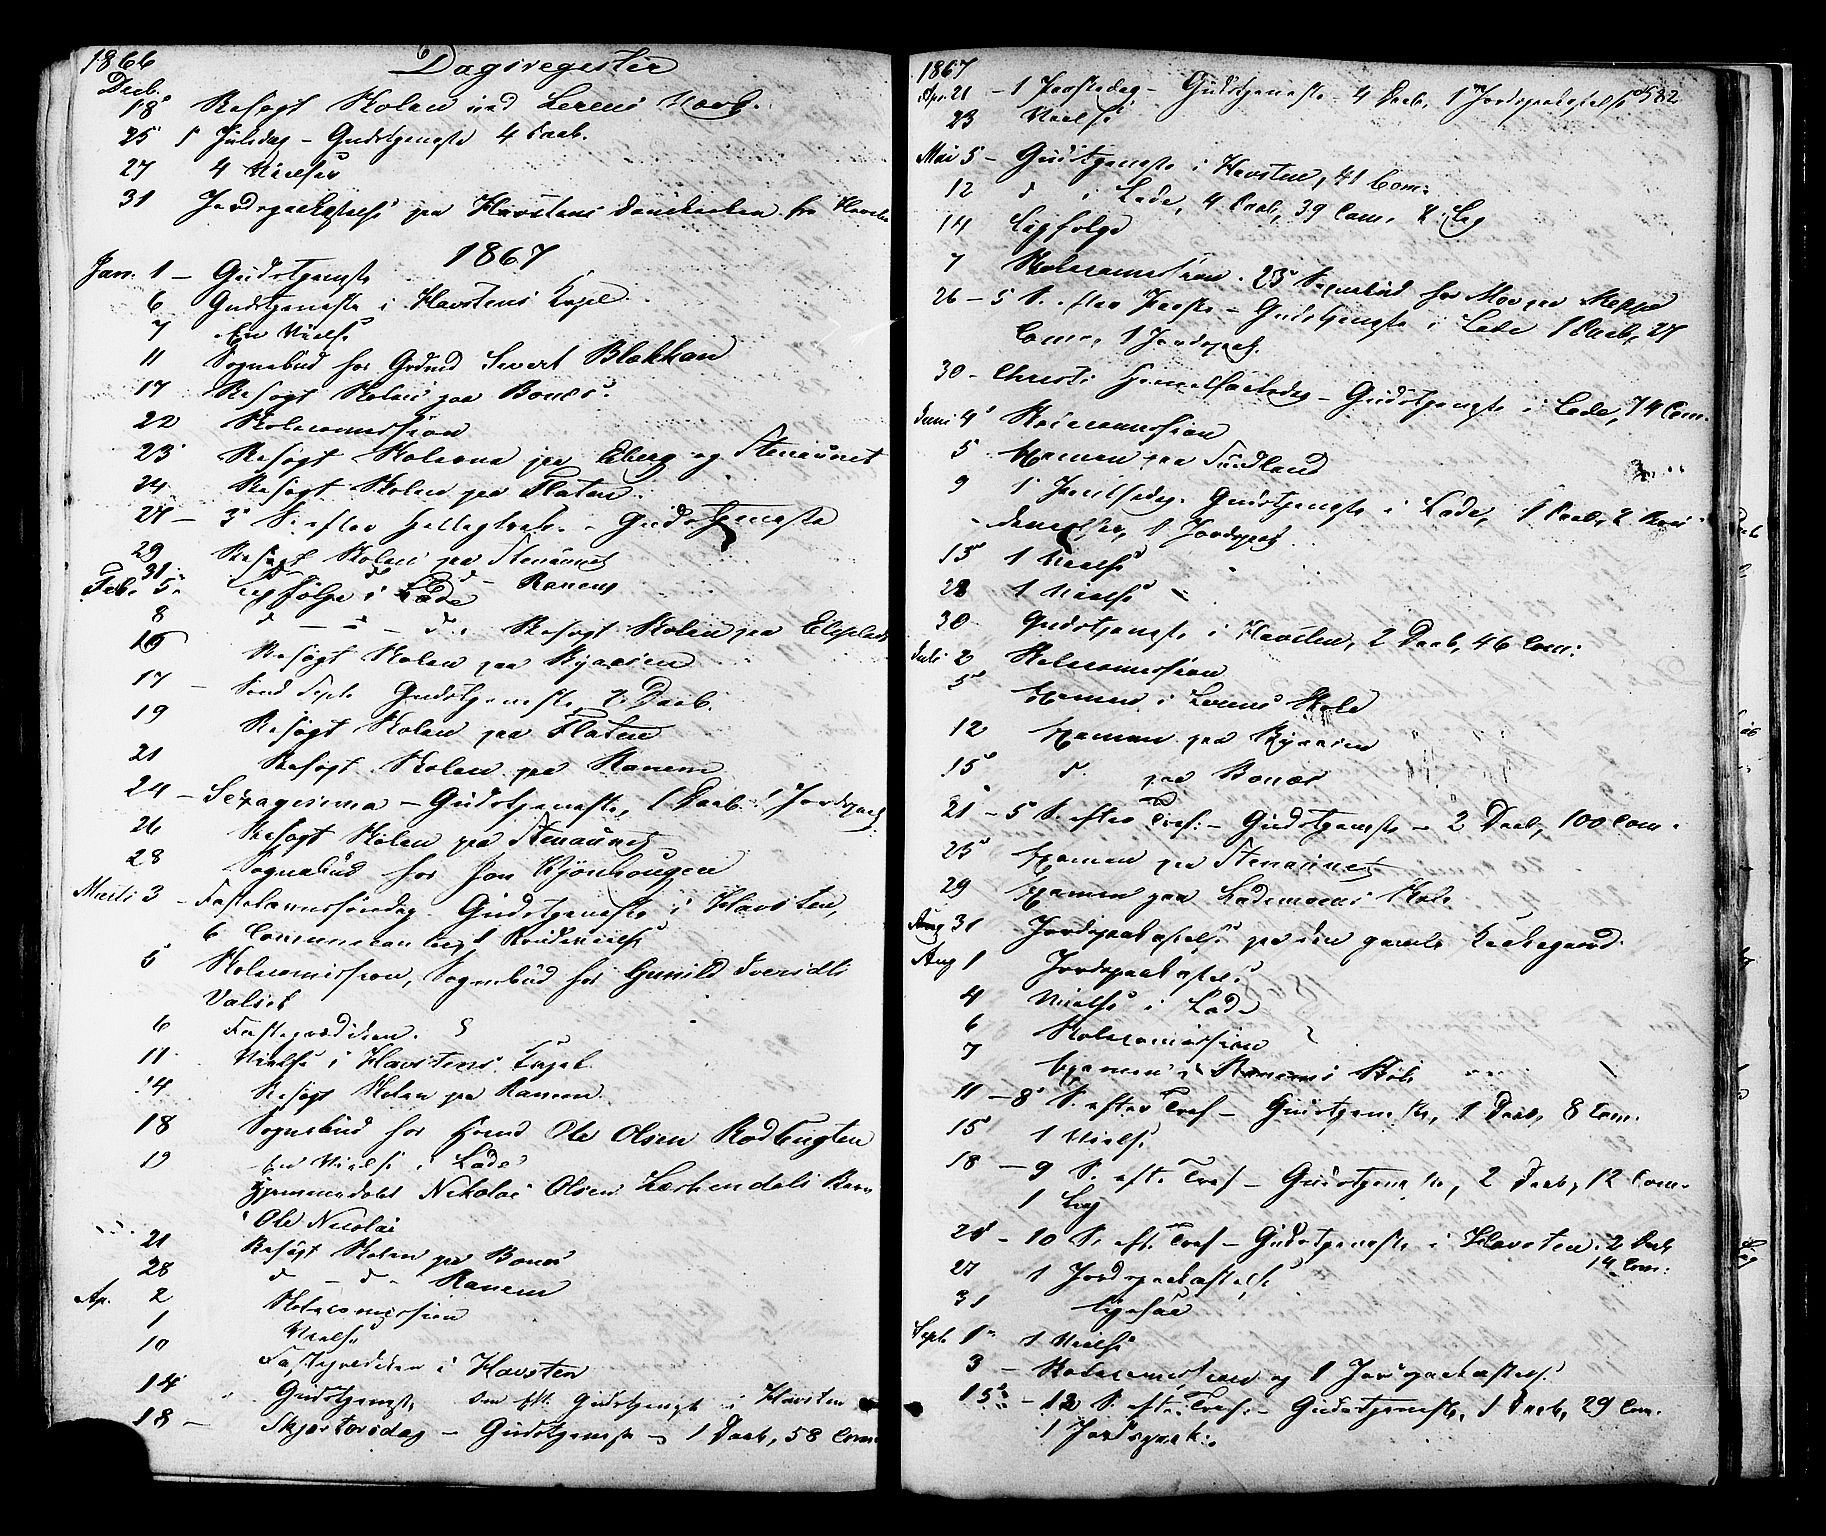 1866
Dagsregister
Decb.
18 Besøgt Skolen ved Lerens
25 1 Juledag - Gudstjeneste 4 Daab.
27 4 Vielser
31 Jordpaakastelse paa Havstens
1867
Jan. 1 - Gudstjeneste
6 Gudstjeneste i Havstens Capel
7 En Vielse
11 Sognebud for Sivert Blakkan
17 Besøgt Skolen paa Bonæs.
22 Skolecommission
23 Besøgt Skolerne paa Eberg og Stenaunet
24 Besøgt Skolen paa Flaten.
27 - 3 S. efter Helligtrek. - Gudstjeneste
29 Besøgt Skolen paa Stenaunet
31 d d Ranem
Feb. 5 Ligfølge i Lade
8 d - d - d. Besøgt Skolen paa
16 Besøgt Skolen paa Byaasen
17 - Gudstjeneste, Daab.
19 Besøgt Skolen paa Flaten
21 Besøgt Skolen paa Ranem
24 - Sexagesima - Gudstjeneste, 1 Daab. 1 Jordpaak
26 Besøgt Skolen paa Stenaunet
28 Sognebud for Jon Bjønhougen
Marts 3 - Fastelavnssøndag. Gudstjeneste i Havsten,
6 1
5 Skolecomission, Sognebud for Gunild
Valset
6 Fasteprædiken.
11 Vielse i Havstens Capel
14 Besøgt Skolen paa Ranem.
18 Sognebud for Ole Olsen Rodbugten
19 En Vielse i Lade
Hjemmedøbt Nikolai Olsen Barn
Ole Nicolai
21 Besøgt Skolen paa Bonæs
28 d - d - Ranem
Ap. 2 Skolecomission
1 Vielse
10 Fasteprediken i Havsten
14 Gudstjeneste, Gudstjeneste i Havsten
18 - Skjærtorsdag - Gudstjeneste - 1 Daab, 58 Com.
1867
Apr. 21 - 1 Paaskedag - Gudstjeneste 4 Daab, 1 Jordpaakastelse 582
23 Vielse
Mai 5 - Gudstjeneste i Havsten, 41 Com.
12 d i Lade, 4 Daab, 39 Com. Lig
14 Ligfølge
7 Skolecomission. Sognebud for
26 - 5 S. efter Paaske - Gudstjeneste i Lade 1 Daab, 27
Com., 1 Jordpaak.
30 - Christi Himmelfartsdag - Gudstjeneste i Lade, 74 Com.
Juni 4 Skolecommission
5 Examen paa
9 1 Pintsedag. Gudstjeneste i Lade, 1 Daab, 2
1 Jordpaak
15 1 Vielse
28 1 Vielse
30 Gudstjeneste i Havsten, 2 Daab, 46 Com.
Juli 2 Skolecomission
5 Examen i Lerens Skole
12 Examen paa Byaasen
15 d. paa Bonæs
21 - 5 S. efter Tref. - Gudstjeneste - 2 Daab, 100 Com.
25 Examen paa Stenaunet
29 Examen paa Lademoens Skole.
31 Jordpaakastelse paa den gamle Kirkegaard.
Aug 1 Jordpaakastelse.
4 Vielse i Lade
6 Skolecomission
7 Examen i Ranems Skole
11 - 8 S. efter Tref - Gudstjeneste, 1 Daab, 8 Com.
15 1 Vielse
18 - 9 S. efter Tref - Gudstjeneste, 2 Daab, 12 Com.
1 Lig
25 - 10 S. eft. Tref - Gudstjeneste i Havsten, 2 Daab
14 Com.
27 1 Jordpaakastelse
31
Sept. 1 1 Vielse
3 - Skolecomission og 1 Jordpaakastelse.
15 - 13 S. efter Tref. - Gudstjeneste, 1 Daab, 29 Com.
1 Jordpaak.